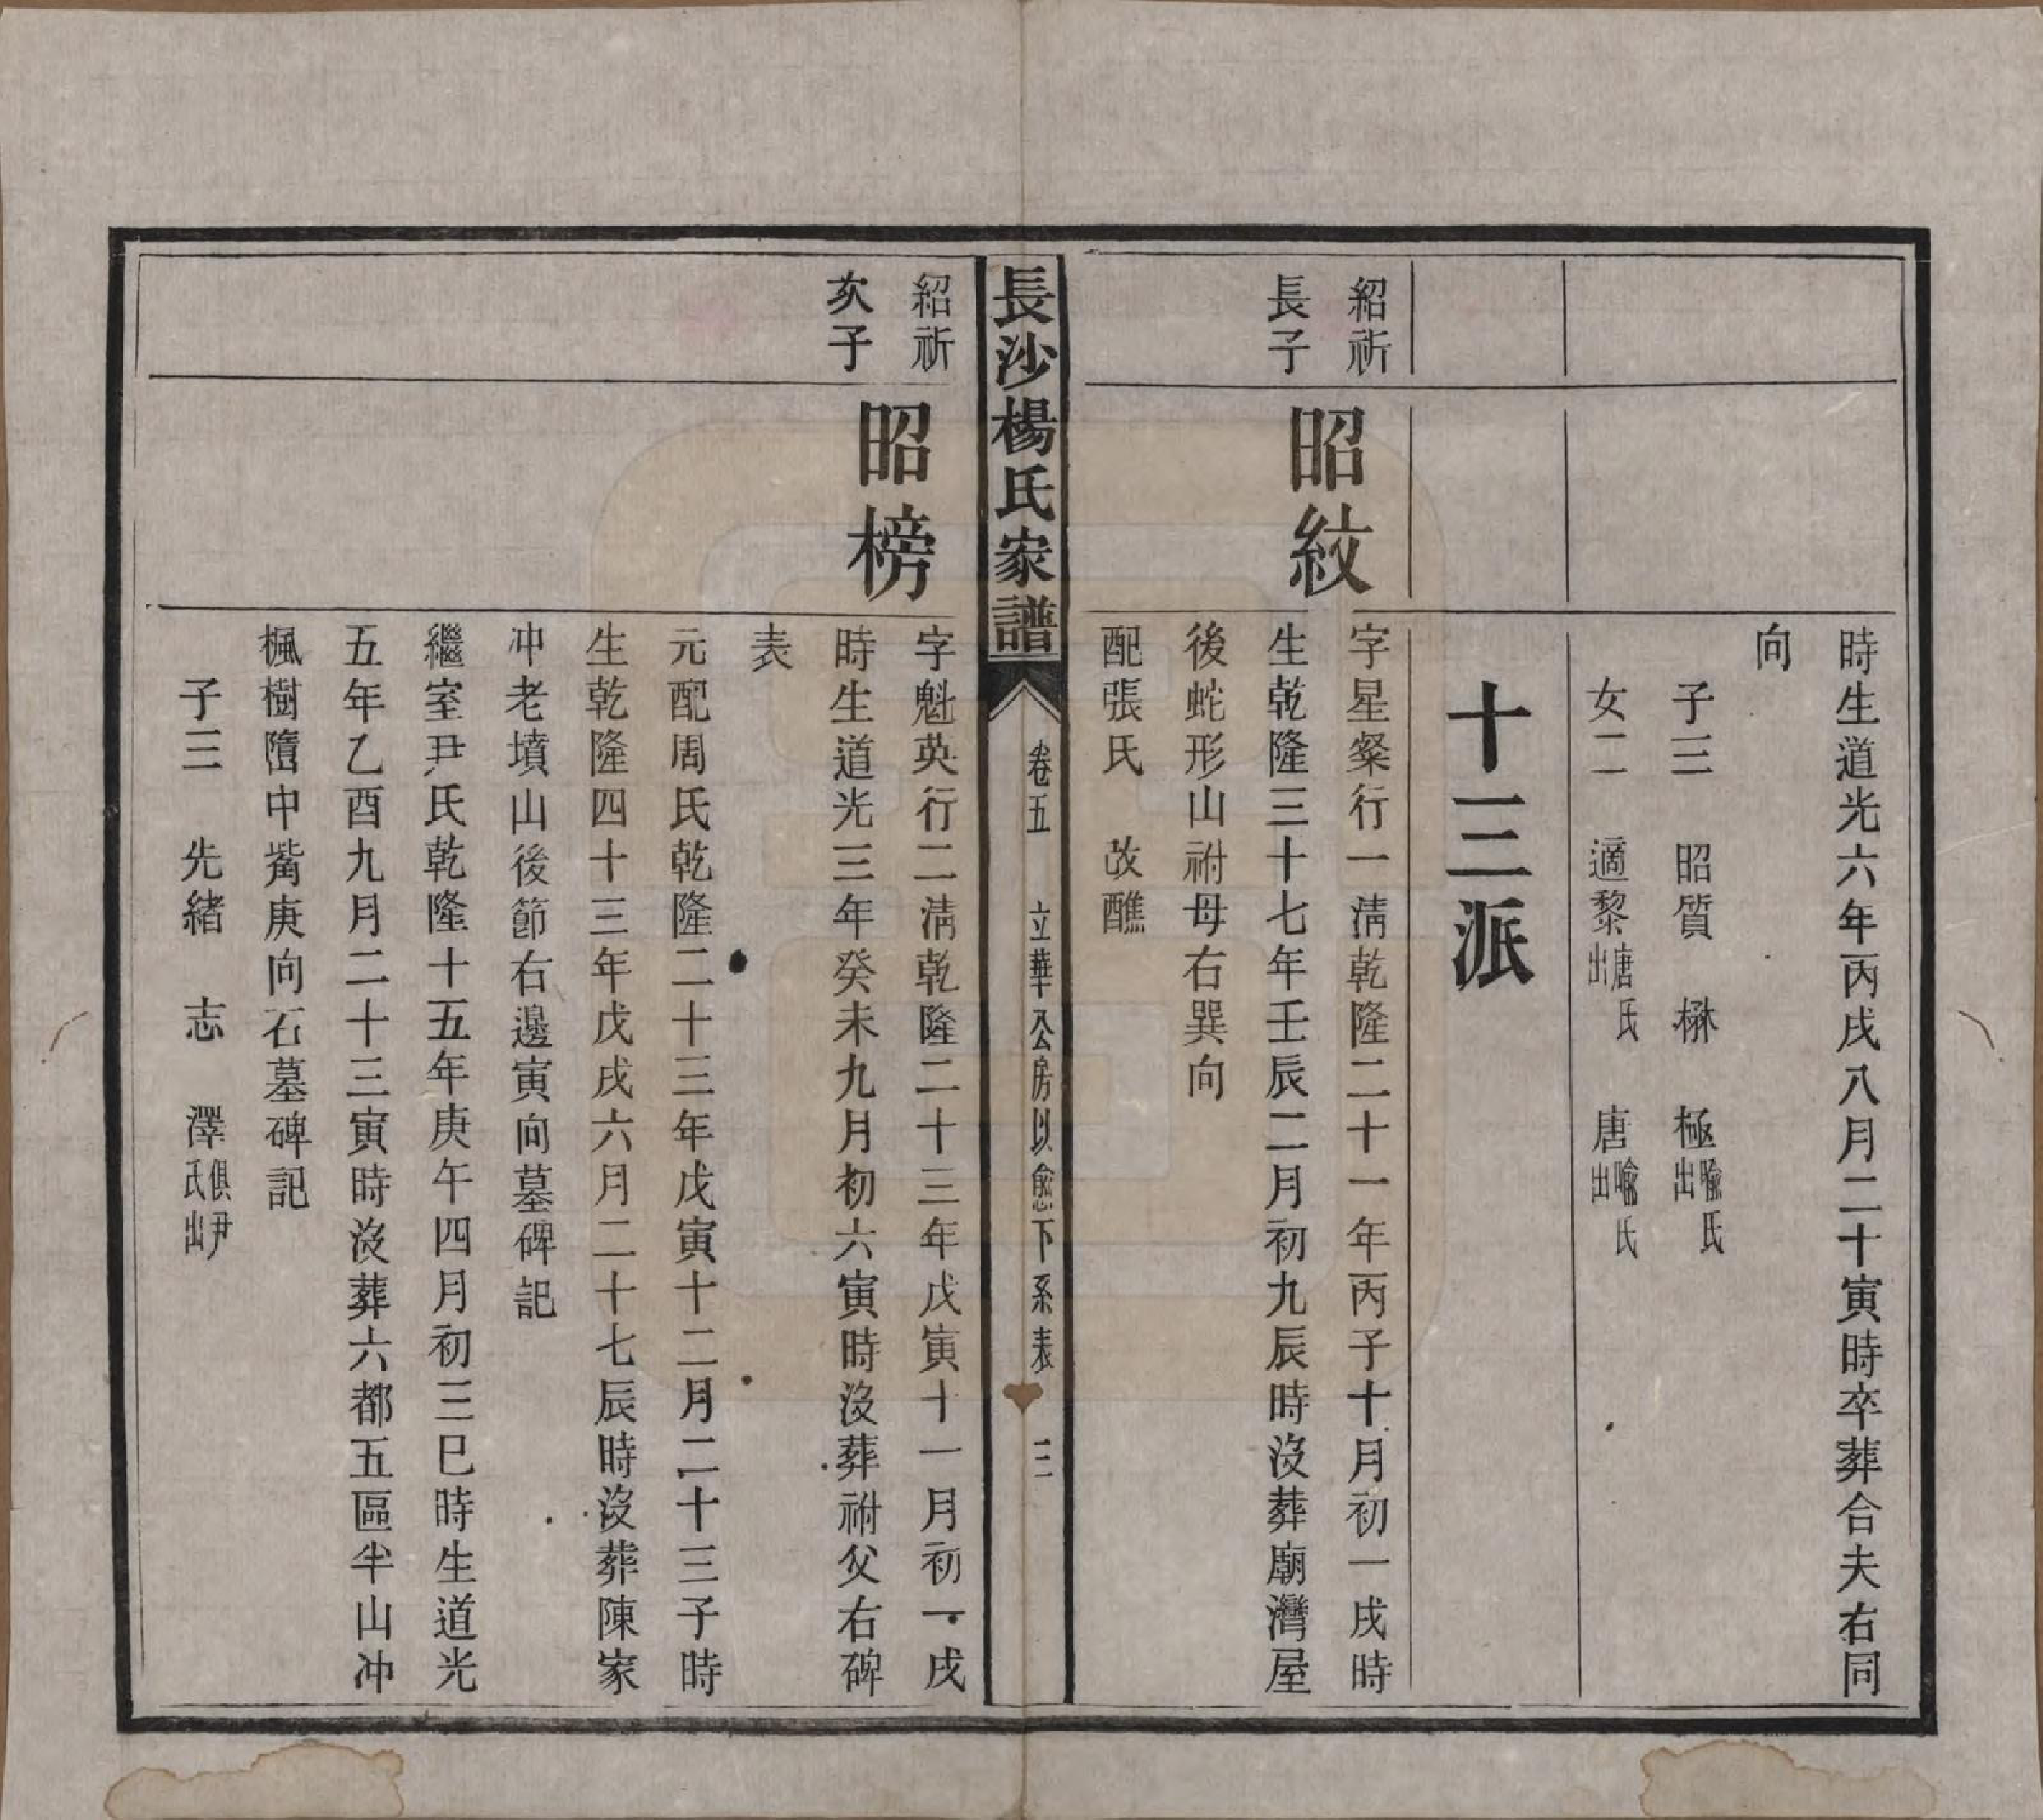 時生道光六年丙戌八月二十寅時卒葬合夫右同
向
子三　昭質　楙　極喻氏出
女二　適黎唐氏出　唐喻氏出
十三派
紹祈
長子
昭紋
字星粲行一淸乾隆二十一年丙子十月初一戌時
生乾隆三十七年壬辰二月初九辰時沒葬廟灣屋
後蛇形山祔母右巽向
配張氏　改醮
長沙楊氏家譜
卷五　立華公房以愈下系表
三
紹祈
次子
昭榜
字魁英行二淸乾隆二十三年戊寅十一月初一戌
時生道光三年癸未九月初六寅時沒葬祔父右碑
表
元配周氏乾隆二十三年戊寅十二月二十三子時
生乾隆四十三年戊戌六月二十七辰時沒葬陳家
冲老墳山後節右邊寅向墓碑記
繼室尹氏乾隆十五年庚午四月初三巳時生道光
五年乙酉九月二十三寅時沒葬六都五區半山冲
楓樹䧟中觜庚向石墓碑記
子三　先緒　志　澤俱尹氏出